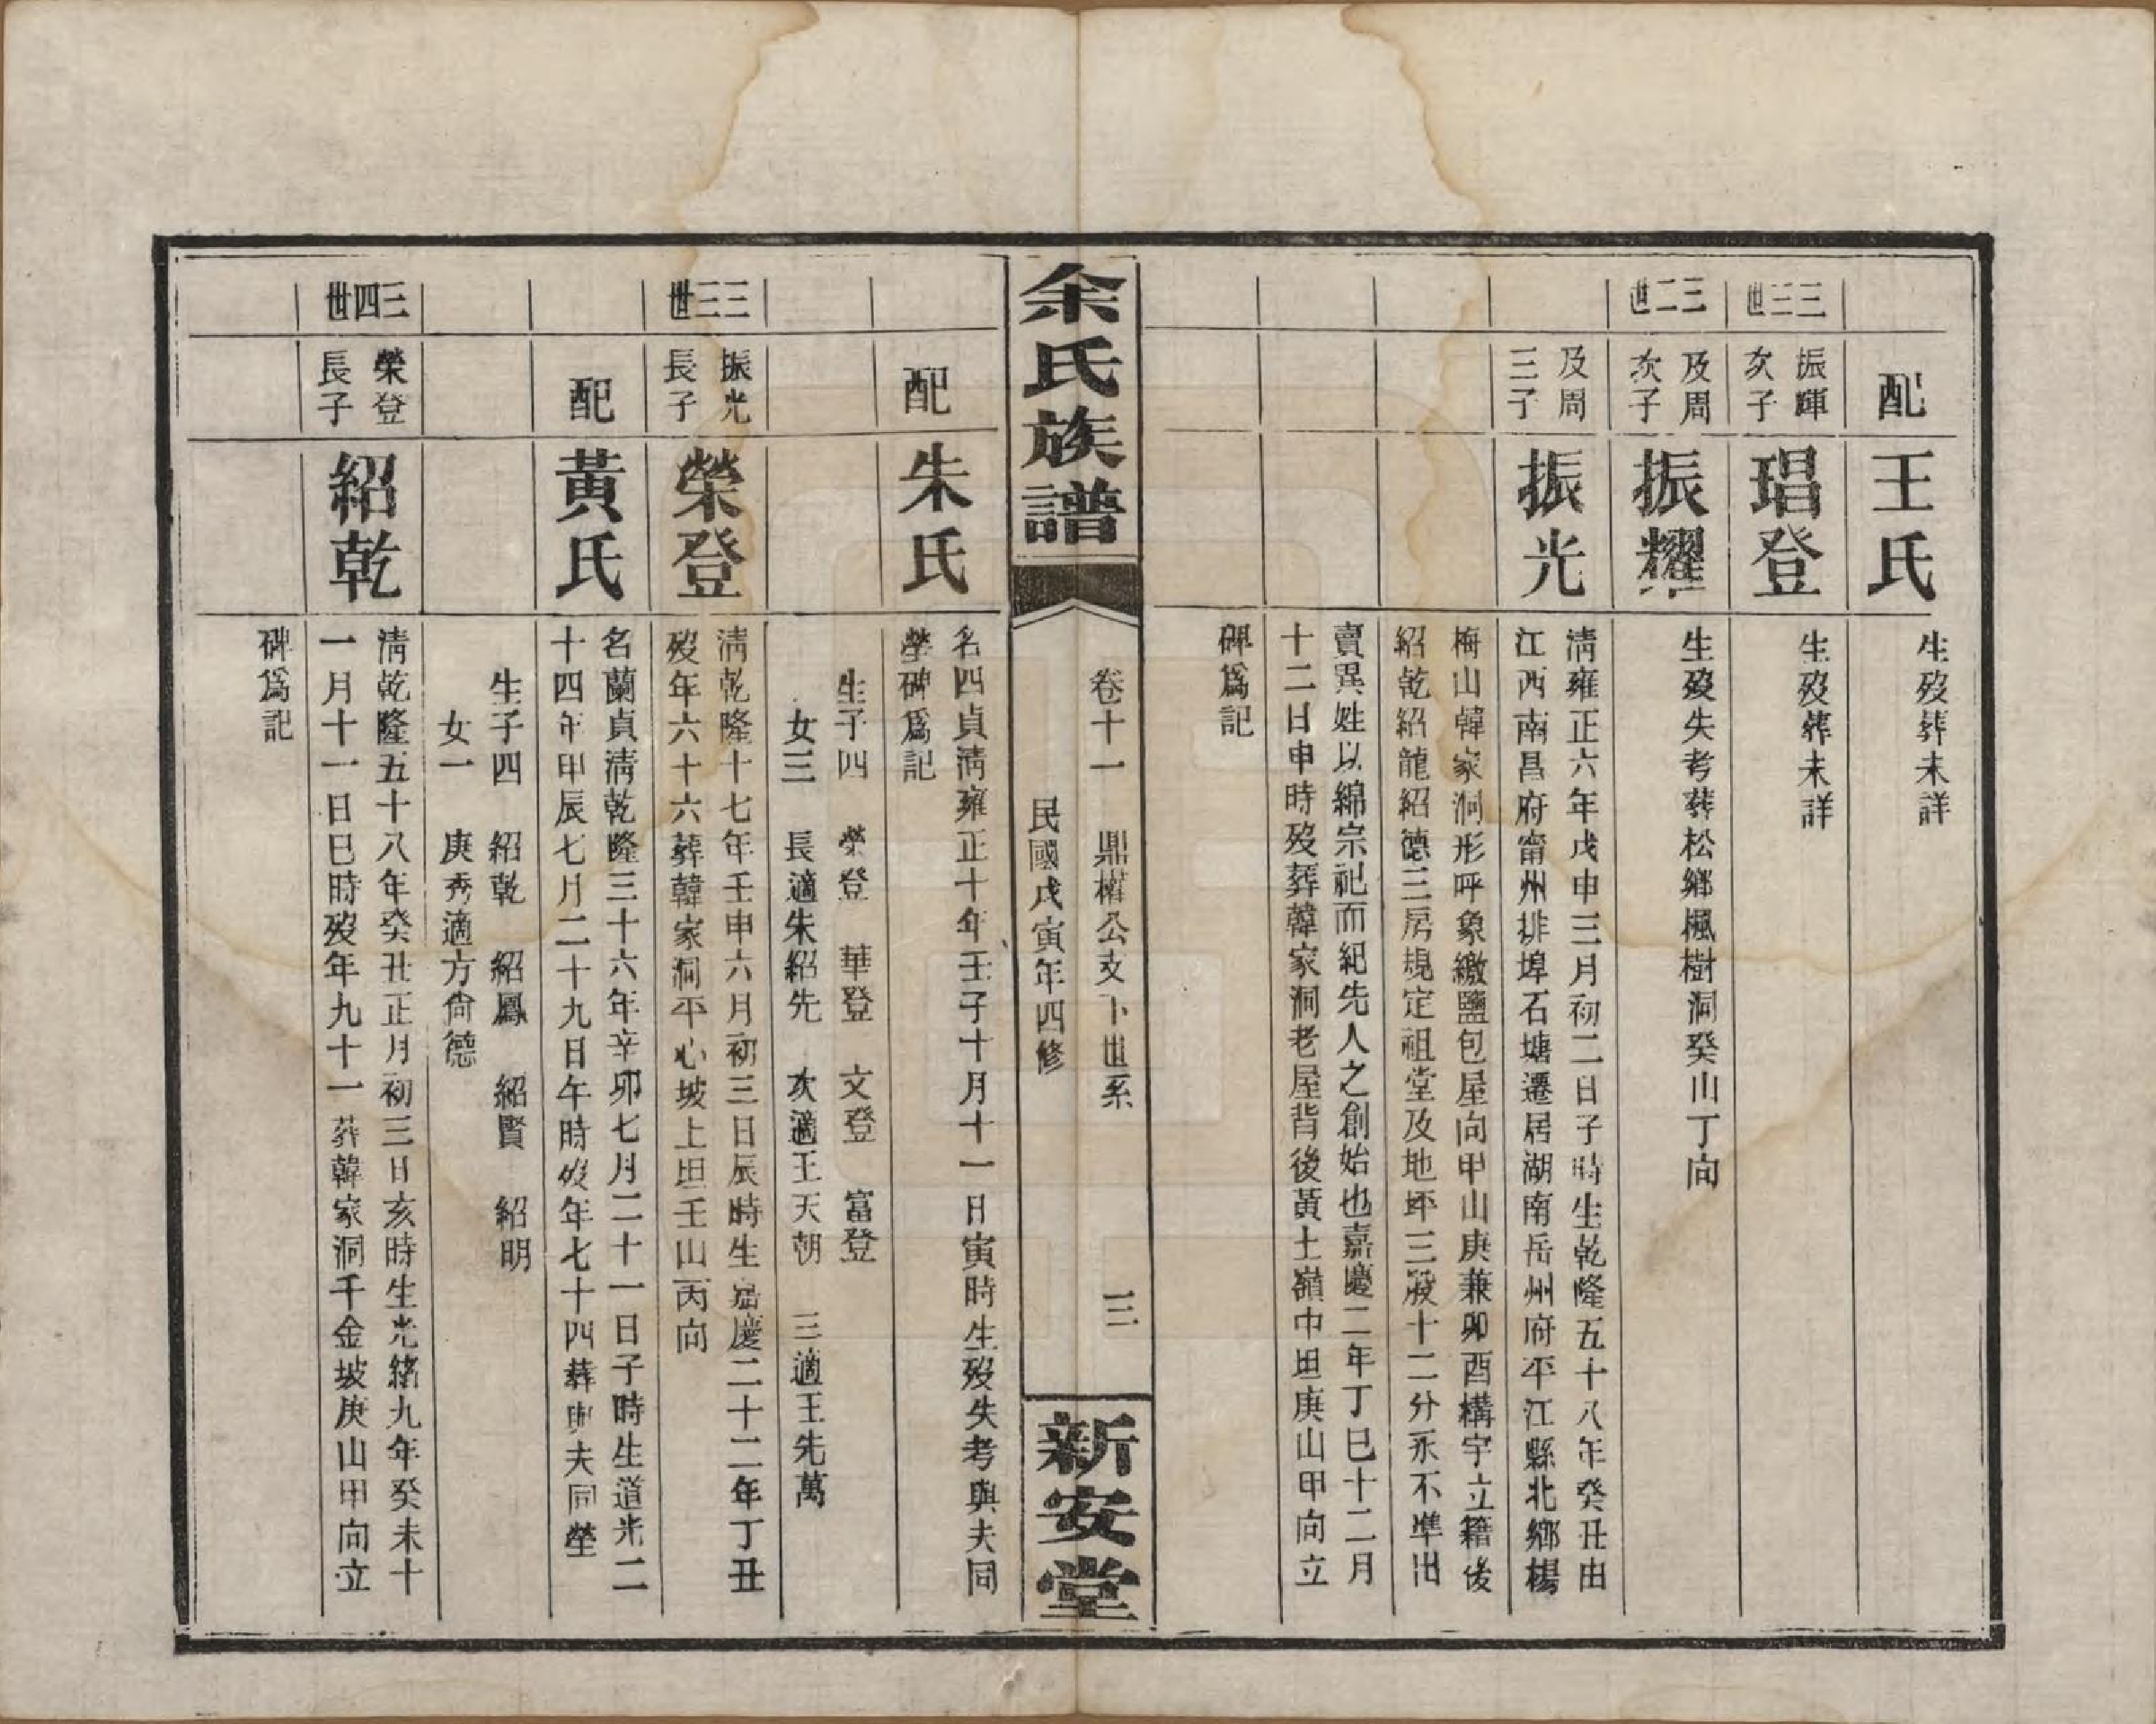 配
王氏
生歿葬未詳
三三世
振輝
次子
琩登
生歿葬未詳
三二世
及周
次子
振耀
生歿失考葬松鄉楓樹洞癸山丁向
及周
三子
振光
清雍正六年戊申三月初二日子時生乾隆五十八年癸丑由
江西南昌府甯州排埠石塘遷居湖南岳州府平江縣北鄉楊
梅山韓家洞形呼象繳鹽包屋向甲山庚兼卯酉構宇立籍後
紹乾紹龍紹德三房規定祖堂及地坪三股十二分永不準出
賣異姓以綿宗祀而紀先人之創始也嘉慶二年丁巳十二月
十二日申時歿葬韓家洞老屋背後黃土嶺中坦庚山甲向立
碑爲記
余氏族譜
卷十一 鼎權公支下世系 三
民國戊寅年四修
新安堂
配
朱氏
名四貞淸雍正十年壬子十月十一日寅時生歿失考與夫同
塋碑爲記
生子四 榮登 華登 文登 富登
女三 長適朱紹先 次適王天朝 三適王先萬
三三世
振光
長子
榮登
淸乾隆十七年壬申六月初三日辰時生嘉慶二十二年丁丑
歿年六十六葬韓家洞平心坡上坦壬山丙向
配
黃氏
名蘭貞淸乾隆三十六年辛卯七月二十一日子時生道光二
十四年甲辰七月二十九日午時歿年七十四葬與夫同塋
生子四 紹乾 紹鳳 紹賢 紹明
女一 庚秀適方尙德
三四世
榮登
長子
紹乾
淸乾隆五十八年癸丑正月初三日亥時生光緒九年癸未十
一月十一日巳時歿年九十一葬韓家洞千金坡庚山甲向立
碑爲記